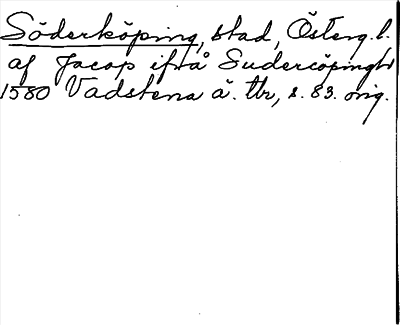 Söderköping, stad, Österg.l.
af Jacop ifrå Sudercöpingh
1580 Vadstena ä. tbr, s. 83. orig.